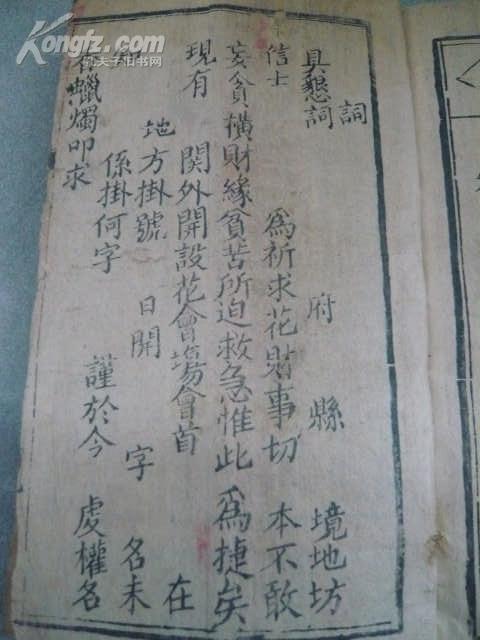 Kongfz.com
孔夫子旧书网
詞
具懇詞 府 縣 境地坊
信士 為祈求花財事切 本不敢
妄貪橫財緣貧苦所迫救急惟此為捷矣
現有 関外開設花會場會首 在
地方掛號 日開 字 名未
係掛何字 謹於今 虔權名
蠟燭叩求